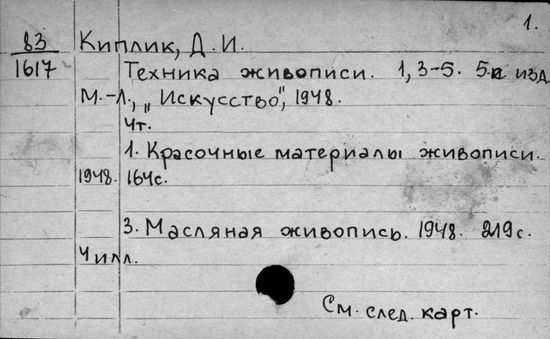 1.
83 Киплик, Д. И.
1617 Техника живописи. 1, 3-5. 5е изд
М.-Л., „Искусство", 1948.
4т.
1. Красочные материалы живописи.
1948. 164с.
3. Масляная живопись. 1948. 219с.
Ч илл.
См. след. карт.